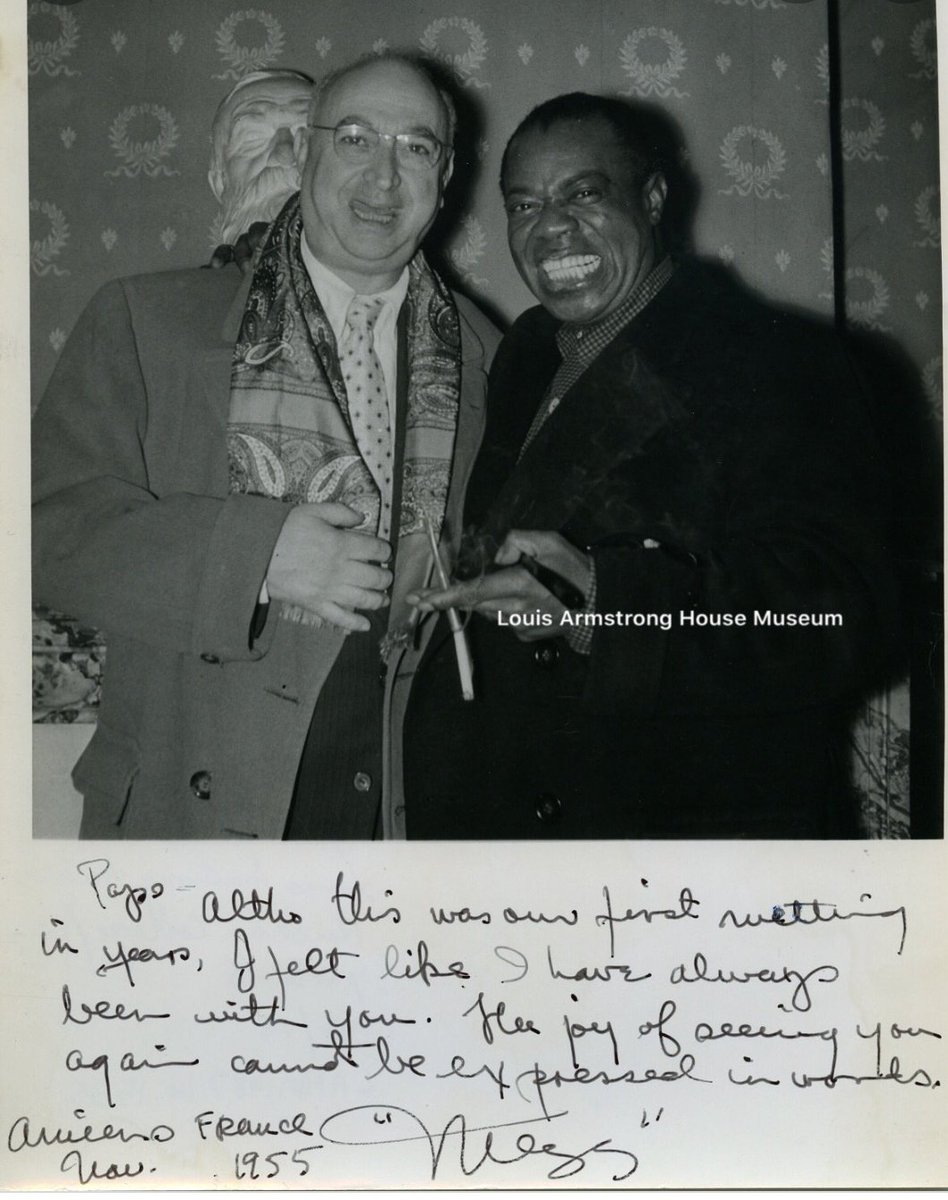 Louis Armstrong House Museum
Pops – Altho this was our first metting
in years, I felt like I have always
been with you. The joy of seeing you
again cannot be expressed in words.
Amiens France "Mezz"
Nov. 1955